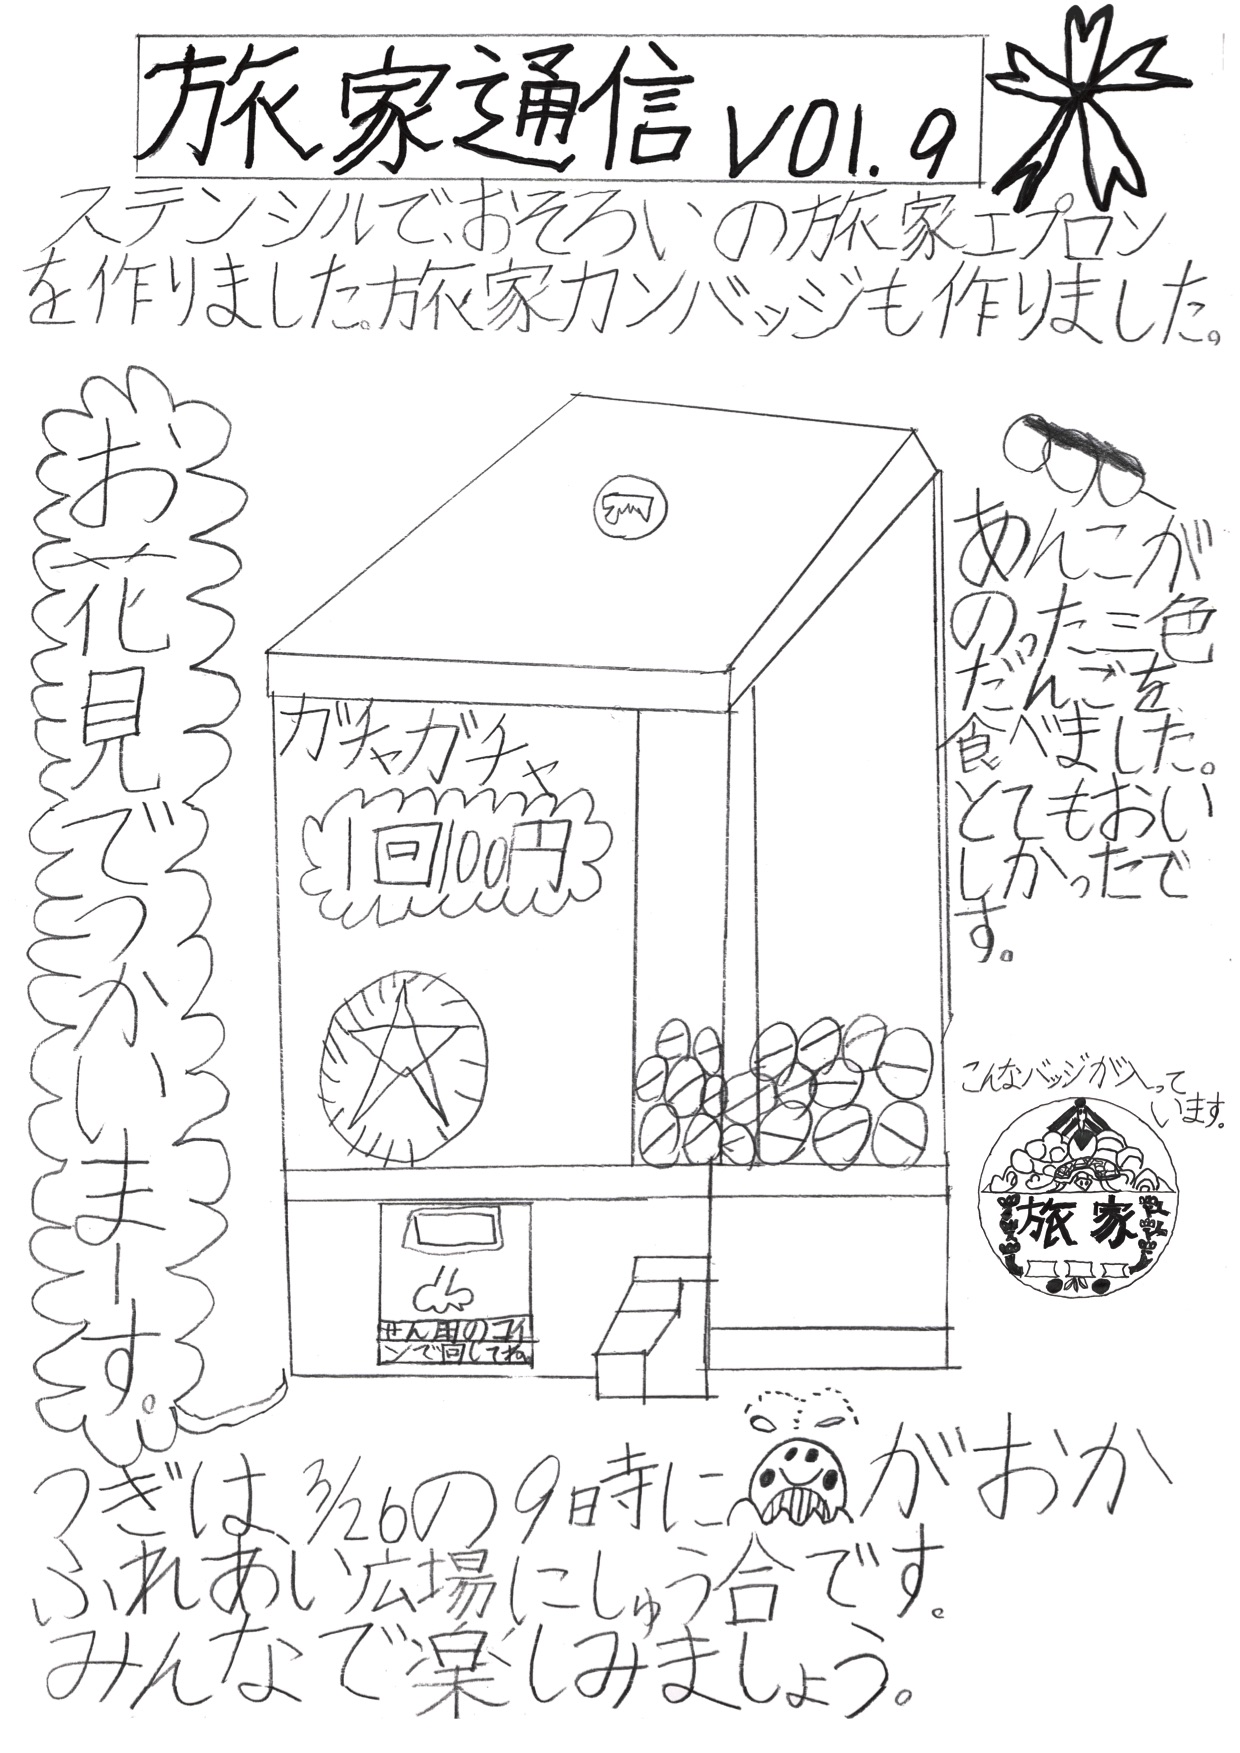 旅家通信 VOl.9
ステンシルで、おそろいの旅家エプロン
を作りました。旅家カンバッジも作りました。
お花見でつかいまーす。
ガチャガチャ
1回100円
せん用のコイ
ンで回してね。
あんこが
のった三色
だんごを
食べました。
とてもおい
しかったで
す。
こんなバッジが入って
います。
旅家
つぎは、3/26の9時に
がおか
ふれあい広場にしゅう合です。
みんなで楽しみましょう。